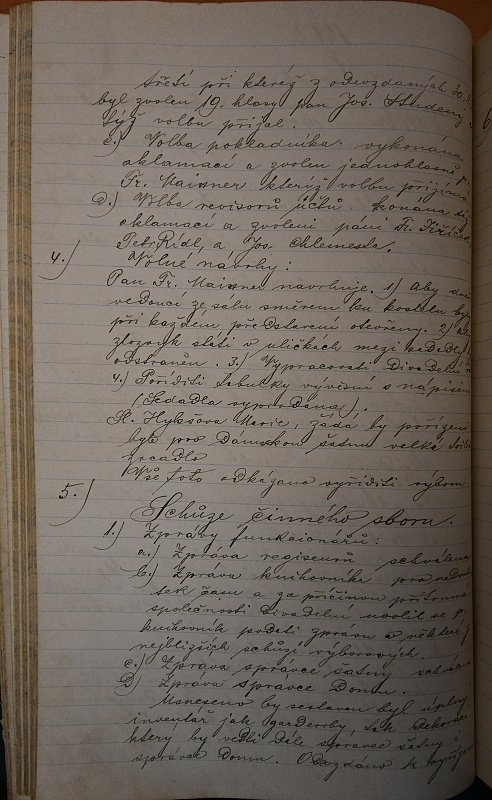 třetí při kteréž z odevzdaných 30
byl zvolen 19. hlasy pan Jos. Studený
týž volbu přijal.
c.) Volba pokladníka: vykonána
aklamací a zvolen jednohlasně p.
Fr. Maixner kterýž volbu přijímá
D.) Volba revisorů účtů. konána též
aklamací a zvoleni páni Fr. Jiřiček
Petr Rídl, a Jos. Chlemesle.
4.) Volné návrhy:
Pan Fr. Maixner navrhuje. 1) Aby
vedoucí ze sálu směrem ku kostelu byly
při každém představení otevřeny. 2) Aby
zlozvyk státi v uličkách mezi sedadly
odstraněn. 3.) Vypracovati Divadelní
4.) Poříditi tabulky vývěsní s nápisem
(Sedadla vyprodána).
Sl. Hykšova Marie, žádá by pořízeno
bylo pro dámskou šatnu velké
zrcádlo
Vše toto odkázáno vyříditi výboru
5.) Schůze činného sboru.
1.) Zprávy funkcionářů:
a.) Zpráva regiseurů schválena
b.) Zpráva knihovníka pro nedosta-
tek času a za příčinou přítomné
společnosti Divadelní uvolil se p.
knihovník podati zprávu v některé
nejbližších schůzí výborových.
c.) Zpráva správce šatny schválena
D) Zpráva správce Domu.
Usneseno by sestaven byl úplný
inventář jak garderoby, tak dekorace
který by vedli dále správce šatny
správce Domu. Odevzdáno k vyřízení